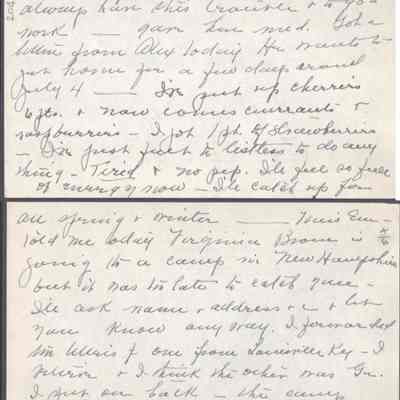 always have this trouble & to you
work — gave him med. Got a
letter from Alex today He wants to
get home for a few days around
July 4 — I've put up cherries
6 qts. & now comes currants &
raspberries — I pt. 1 pt. of strawberries
— I'm just just to listless to do any
thing — Tired & no pep. I'll feel so full
of energy now — I'll catch up for
all spring & winter — Miss Em-
told me today Virginia Brown is
going to a camp in New Hampshire
but it was too late to catch you —
I'll ask name & address & let
you know any way. I forwarded
letters from one from Louisville Ky. — I
& I think the other was
I put on back — the camp